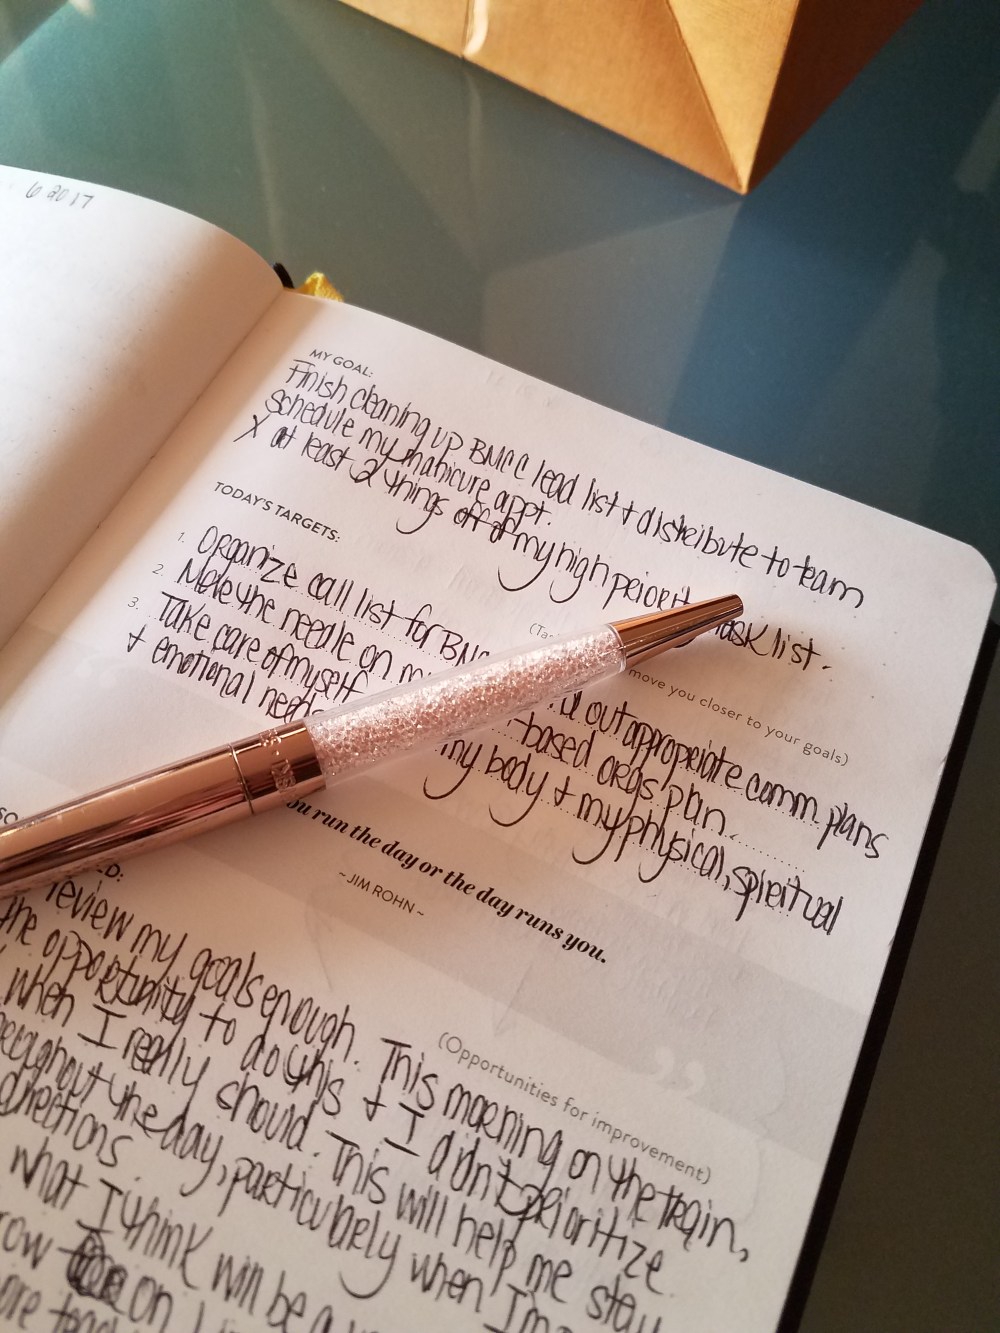 6 2017
MY GOAL:
Finish cleaning up BMCC lead list + distribute to team
schedule my manicure appt.
X at least 2 things off of my high priority task list.
TODAY'S TARGETS:
(Tas move you closer to your goals)
1. Organize call list for BM out appropriate comm plans
2. Move the needle on my -based orgs plan.
3. Take care of myself my body + my physical, spiritual
+ emotional needs
ou run the day or the day runs you.
~JIM ROHN~
ED:
(Opportunities for improvement)
review my goals enough. This morning on the train,
the opportunity to do this + I didn't prioritize
when I really should. This will help me stay
roughout the day, particularly when I'm
directions
what I think will be a
row on
ore